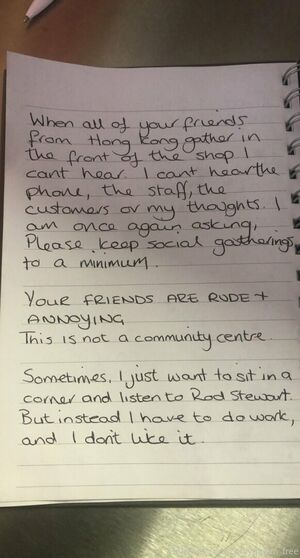 When all of your friends
from Hong Kong gather in
the front of the shop I
cant hear. I cant hear the
phone, the staff, the
customers or my thoughts. I
am once again asking,
Please keep social gatherings
to a minimum.
YOUR FRIENDS ARE RUDE +
ANNOYING
This is not a community centre.
Sometimes, I just want to sit in a
corner and listen to Rod Stewart.
But instead I have to do work,
and I dont like it.